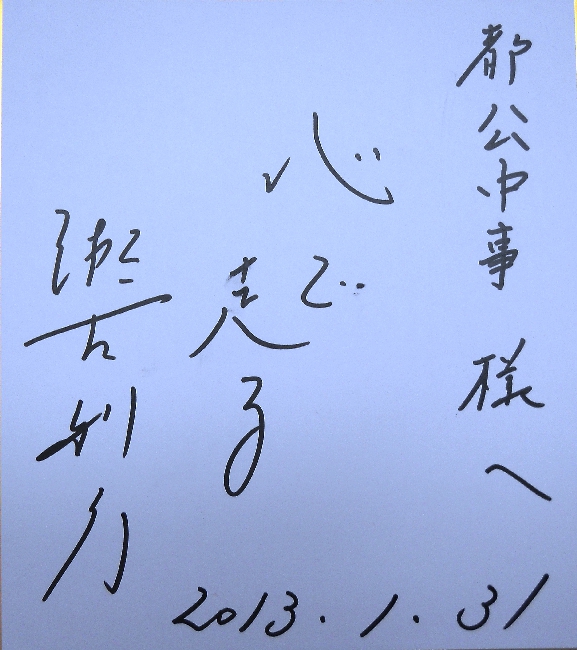 都公中事 様へ
心で
走る
瀬古利彦
2013.1.31